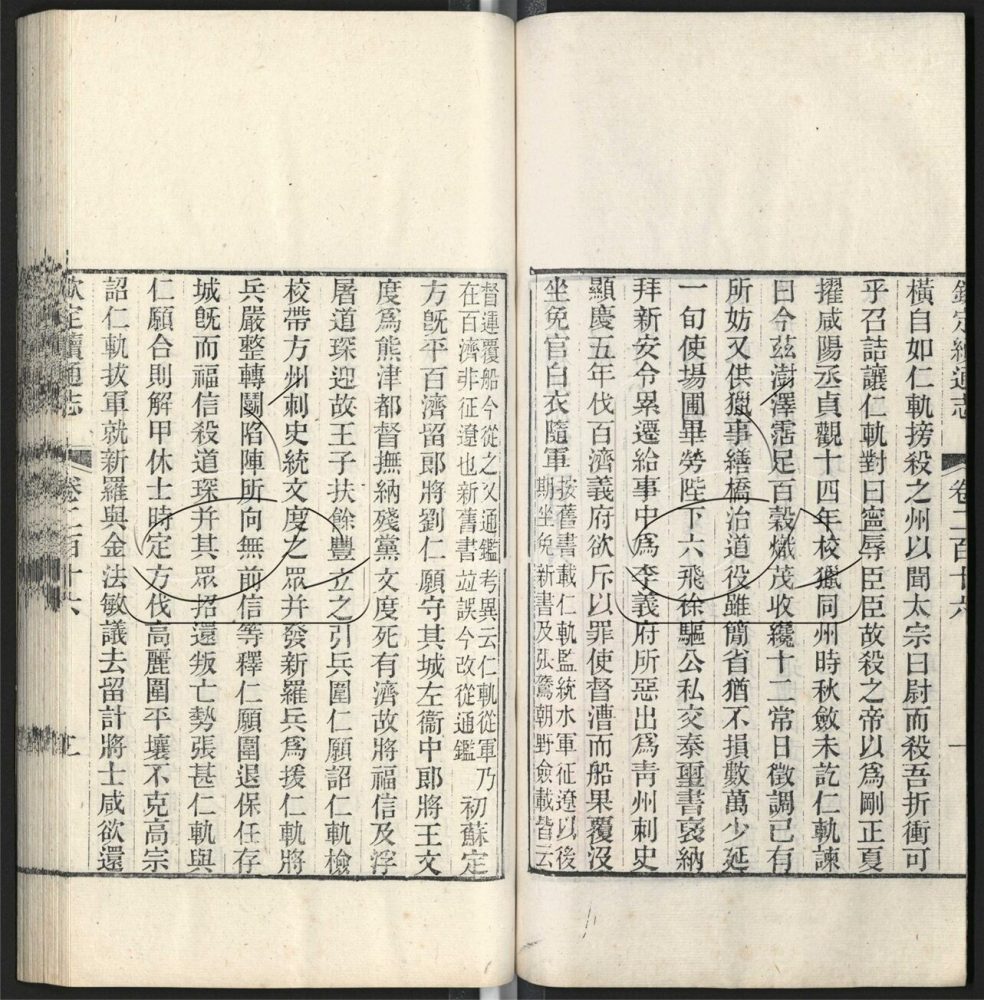 欽定續通志 卷二百十六
橫自如仁軌搒殺之州以聞太宗曰尉而殺吾折衝可
乎召詰讓仁軌對曰寍辱臣臣故殺之帝以爲剛正夏
擢咸陽丞貞觀十四年校獵同州時秋斂未訖仁軌諫
曰今茲澍澤霑足百穀熾茂收纔十二常日徵調已有
所妨又供獵事繕橋治道役雖簡省猶不損數萬少延
一旬使場圃畢勞陛下六飛徐驅公私交泰璽書褒納
拜新安令累遷給事中爲李義府所惡出爲靑州刺史
顯慶五年伐百濟義府欲斥以罪使督漕而船果覆沒
坐免官白衣隨軍 按舊書載仁軌監統水軍征遼以後
期坐免新書及張鷟朝野僉載皆云
督運覆船今從之又通鑑考異云仁軌從軍乃
在百濟非征遼也新舊書竝誤今改從通鑑 初蘇定
方旣平百濟留郎將劉仁願守其城左衞中郎將王文
度爲熊津都督撫納殘黨文度死有濟故將福信及浮
屠道琛迎故王子扶餘豐立之引兵圍仁願詔仁軌檢
校帶方州刺史統文度之眾并發新羅兵爲援仁軌將
兵嚴整轉鬭陷陣所向無前信等釋仁願圍退保任存
城旣而福信殺道琛并其眾招還叛亡勢張甚仁軌與
仁願合則解甲休士時定方伐高麗圍平壤不克高宗
詔仁軌拔軍就新羅與金法敏議去留計將士咸欲還
欽定續通志 卷二百十六